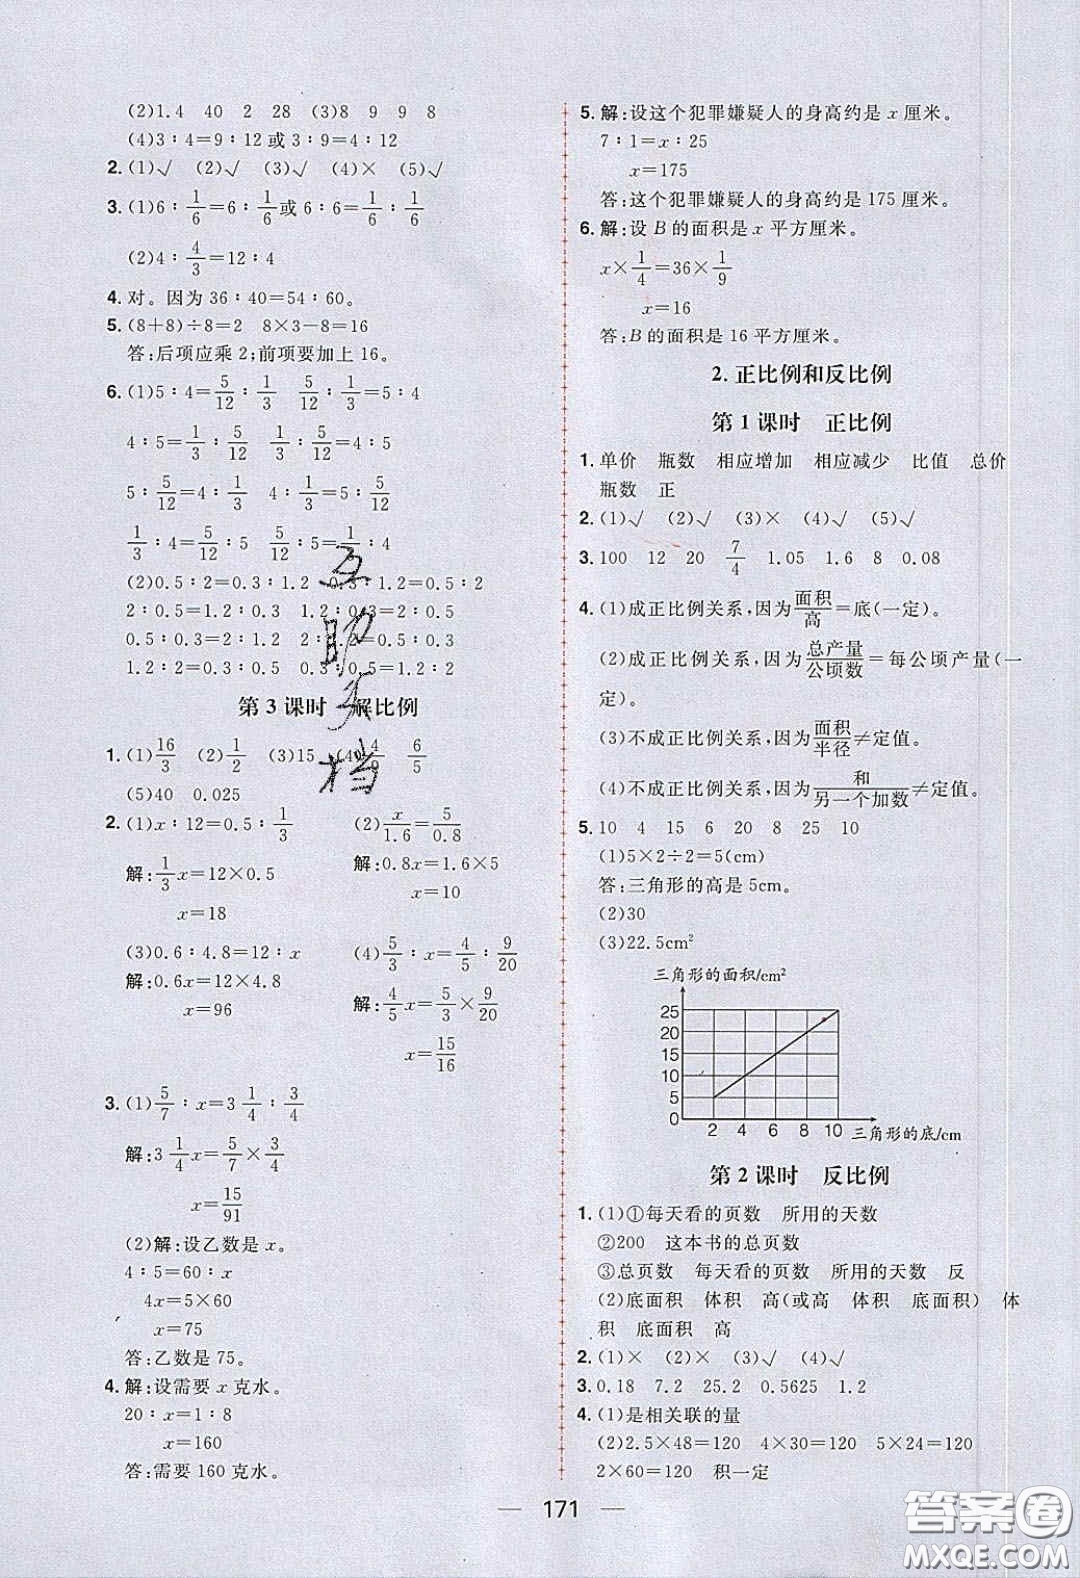 (2)1.4　40　2　28　(3)8　9　9　8
(4)3∶4=9∶12或3∶9=4∶12
2. (1)√　(2)√　(3)√　(4)×　(5)√
3. (1)6∶1/6=6∶1/6或6∶6=1/6∶1/6
(2)4∶4/3=12∶4
4. 对。因为36∶40=54∶60。
5. (8+8)÷8=2　8×3-8=16
答:后项应乘2;前项要加上16。
6. (1)5∶4=5/12∶1/3　5/12∶1/3=5∶4
4∶5=1/3∶5/12　1/3∶5/12=4∶5
5∶5/12=4∶1/3　4∶1/3=5∶5/12
1/3∶4=5/12∶5　5/12∶5=1/3∶4
(2)0.5∶2=0.3∶1.2　0.3∶1.2=0.5∶2
2∶0.5=1.2∶0.3　1.2∶0.3=2∶0.5
0.5∶0.3=2∶1.2　2∶1.2=0.5∶0.3
1.2∶2=0.3∶0.5　0.3∶0.5=1.2∶2
第3课时　解比例
1. (1)16/3　(2)1/2　(3)15　(4)4/9　6/5
(5)40　0.025
2. (1)x∶12=0.5∶1/3　(2)x/1.6=5/0.8
解:1/3x=12×0.5　解:0.8x=1.6×5
x=18　x=10
(3)0.6∶4.8=12∶x　(4)5/3∶x=4/5∶9/20
解:0.6x=12×4.8　解:4/5x=5/3×9/20
x=96　x=15/16
3. (1)5/7∶x=3 1/4∶3/4
解:3 1/4x=5/7×3/4
x=15/91
(2)解:设乙数是x。
4∶5=60∶x
4x=5×60
x=75
答:乙数是75。
4. 解:设需要x克水。
20∶x=1∶8
x=160
答:需要160克水。
5. 解:设这个犯罪嫌疑人的身高约是x厘米。
7∶1=x∶25
x=175
答:这个犯罪嫌疑人的身高约是175厘米。
6. 解:设B的面积是x平方厘米。
x×1/4=36×1/9
x=16
答:B的面积是16平方厘米。
2.正比例和反比例
第1课时　正比例
1. 单价　瓶数　相应增加　相应减少　比值　总价
瓶数　正
2. (1)√　(2)√　(3)×　(4)√　(5)√
3. 100　12　20　7/4　1.05　1.6　8　0.08
4. (1)成正比例关系,因为面积/高=底(一定)。
(2)成正比例关系,因为总产量/公顷数=每公顷产量(一
定)。
(3)不成正比例关系,因为面积/半径≠定值。
(4)不成正比例关系,因为和/另一个加数≠定值。
5. 10　4　15　6　20　8　25　10
(1)5×2÷2=5(cm)
答:三角形的高是5cm。
(2)30
(3)22.5cm²
三角形的面积/cm²
25
20
15
10
5
0
2　4　6　8　10　三角形的底/cm
第2课时　反比例
1. (1)①每天看的页数　所用的天数
②200　这本书的总页数
③总页数　每天看的页数　所用的天数　反
(2)底面积　体积　高(或高　体积　底面积)　体
积　底面积　高
2. (1)×　(2)×　(3)√　(4)√
3. 0.18　7.2　25.2　0.5625　1.2
4. (1)是相关联的量
(2)2.5×48=120　4×30=120　5×24=120
2×60=120　积一定
171
互助文档
答案圈
MXQE.COM